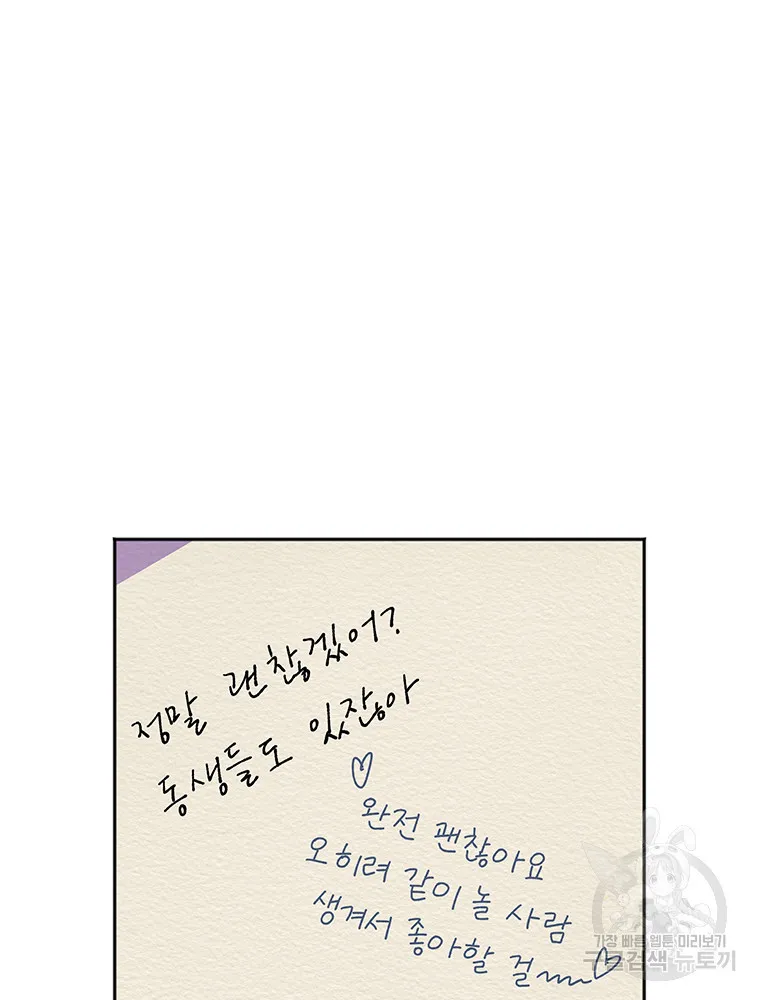 정말 괜찮겠어?
동생들도 있잖아
♡
완전 괜찮아요
오히려 같이 놀 사람
생겨서 좋아할 걸~~♡
가장 빠른 웹툰 미리보기
구글검색 뉴토끼